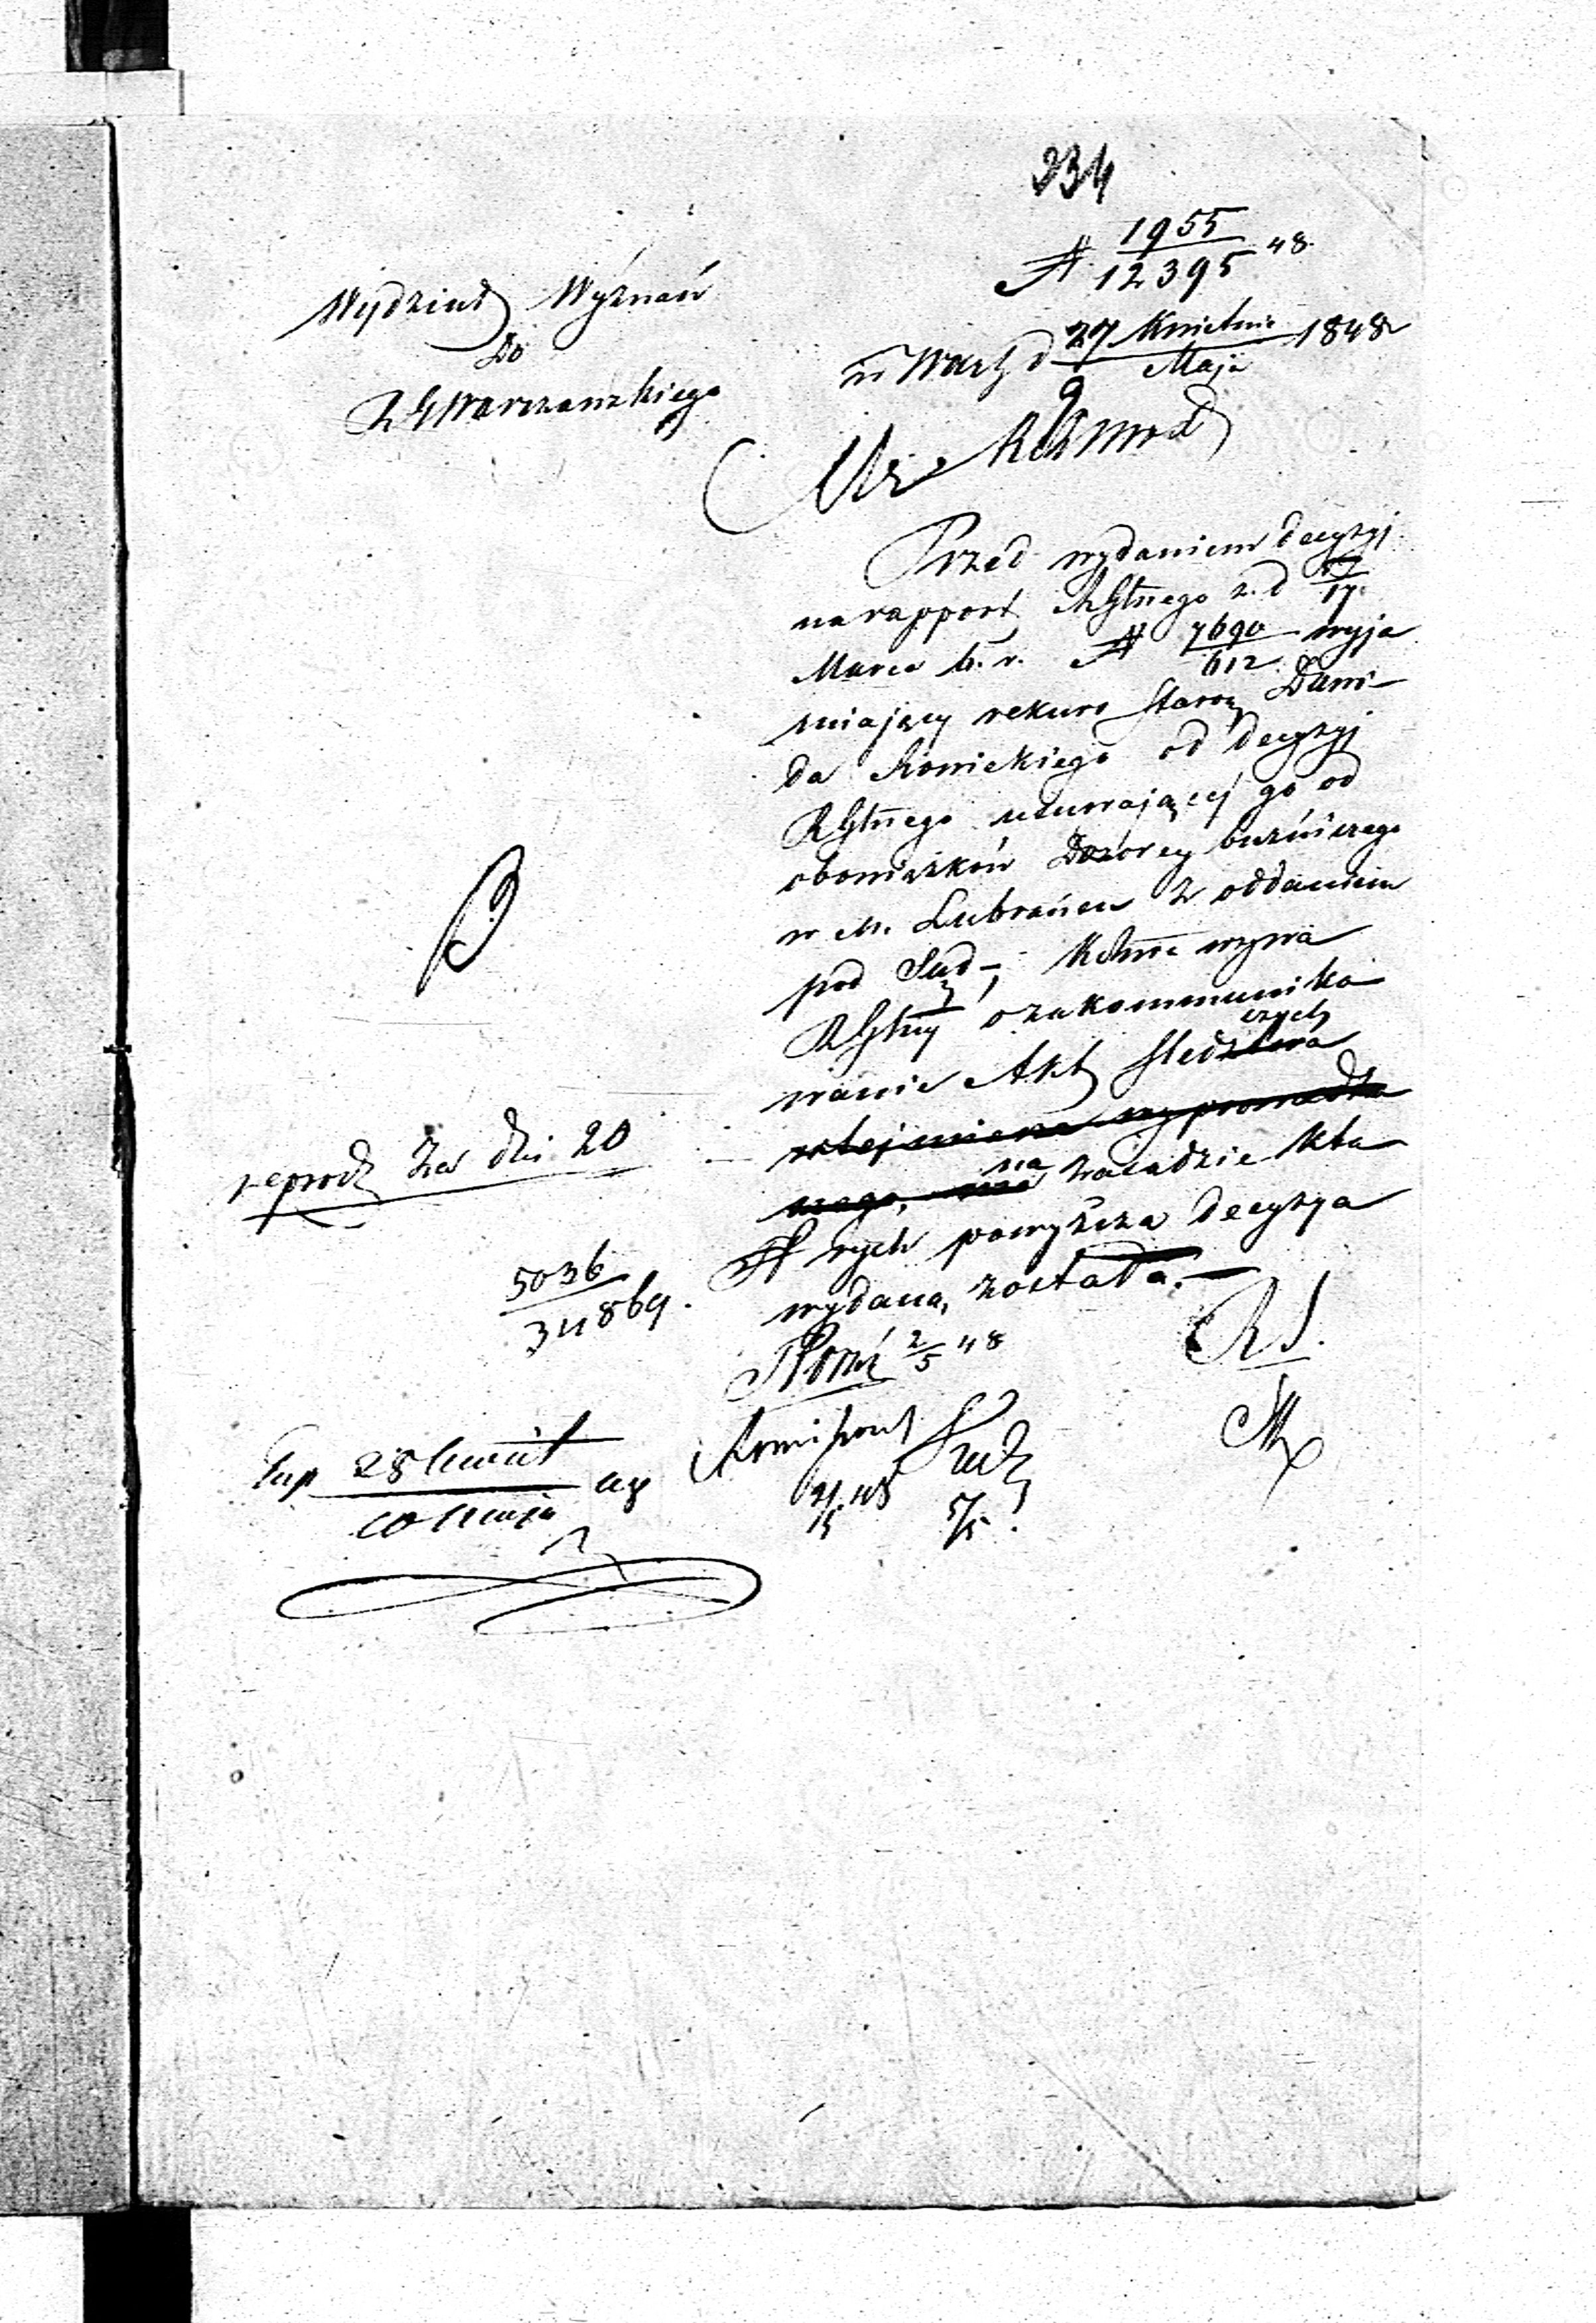 234
№ 1955/12395 48
Wydział Wyznań
Do
R G Warszawskiego
w Warsz d 27 Kwietnia/9 Maja 1848 r
Przed wydaniem decyzyj
na rapport RGłnego z d 5/17
Marca b. r. № 7690/612 wyja
sniający rekurs Staroz Dawi-
da Konickiego od decyzyj
RGłnego usuwającej go od
obowiązków Dozorcy bużniczego
w m. Lubrańcu z oddaniem
pod Sąd –, wzywa
RGłny o zakommuniko
wanie Akt Sledczych
na zasadzie któ
rych powyższa decyzya
wydaną została. —
reprod za dni 20
5036/34869.
2/5 48
RS.
28 Kwiet/10 Maja
4/5 48
5/5.